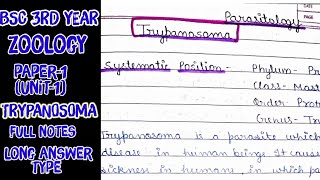 BSC 3RD YEAR
ZOOLOGY
PAPER-1
(UNIT-1)
TRYPANOSOMA
FULL NOTES
LONG ANSWER
TYPE
Parasitology
Trypanosoma
Systematic Position - Phylum - Pr
Class - Mast
Order - Prot
Genus - Try
Trypanosoma is a parasite which
disease in human beings. It cause
sickness in humans, in which pa